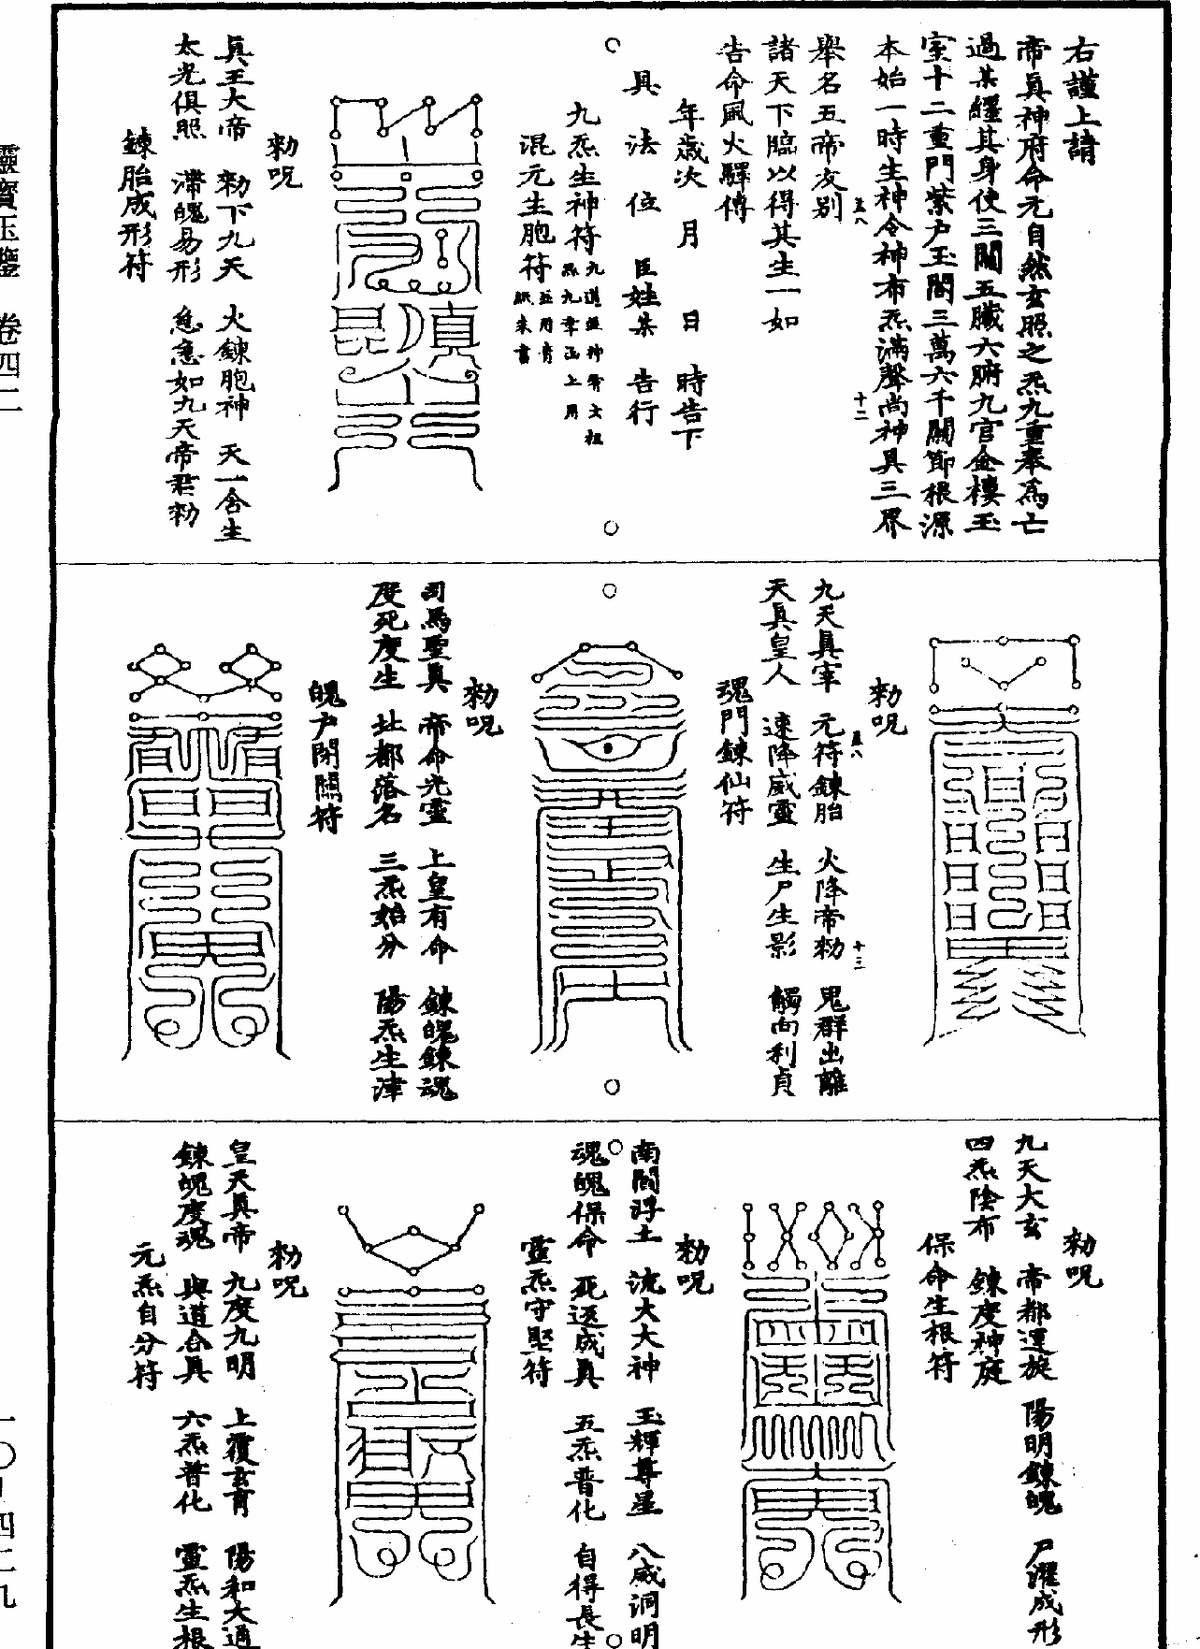 右謹上請
帝眞神府命元自然玄照之炁九重奉爲亡
過某經其身使三關五臟六腑九宮金樓玉
室十二重門紫戶玉閣三萬六千關節根源
本始一時生神令神布炁滿聲尚神具三界
舉名五帝友別
諸天下臨以得其生一如
告命風火驛傳
年歲次 月 日 時告下
具法位 臣姓某 告行
九炁生神符
混元生胞符
勑呪
眞王大帝 勑下九天 火鍊胞神 天一含生
太光俱照 滯魄易形 急急如九天帝君勑
鍊胎成形符
勑呪
九天眞宰 元符鍊胎 火降帝勑 鬼群出離
天眞皇人 速降威靈 生尸生影 觸向利貞
魂門鍊仙符
勑呪
司馬聖眞 帝命光靈 上皇有命 鍊魄鍊魂
度死度生 北都落名 三炁始分 陽炁生津
魄戶閉關符
勑呪
九天大玄 帝都運旋 陽明鍊魄 尸濯成形
四炁陰布 鍊度神庭
保命生根符
勑呪
南閻浮土 流大大神 玉輝尊星 八威洞明
魂魄保命 死返成眞 五炁普化 自得長生
靈炁守堅符
勑呪
皇天眞帝 九度九明 上覆玄育 陽和大通
鍊魄度魂 與道合眞 六炁普化 靈炁生根
元炁自分符
靈寶玉鑒 卷四二
一〇-四二九